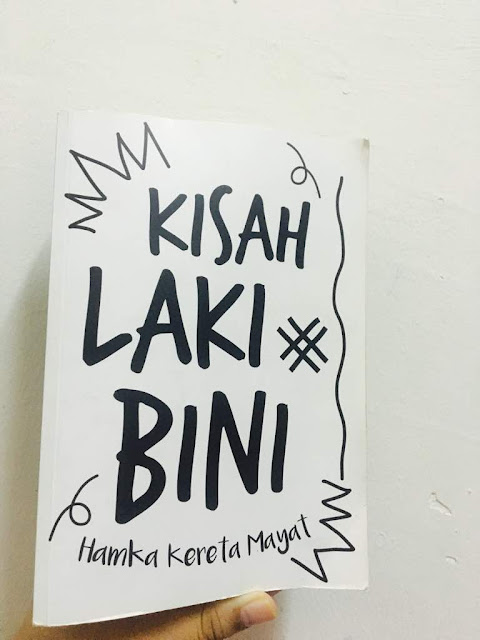 KISAH
LAKI
BINI
Hamka Kereta Mayat